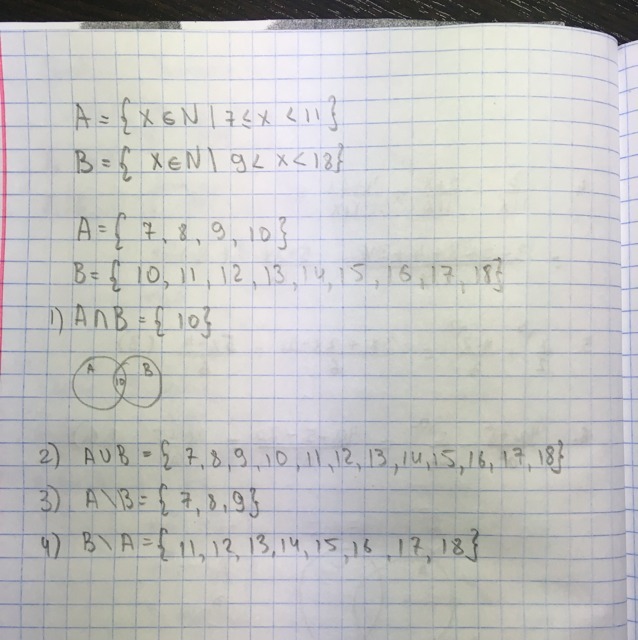 A = { x ∈ N | 7 ≤ x < 11 }
B = { x ∈ N \ 9 < x < 18 }
A = { 7, 8, 9, 10 }
B = { 10, 11, 12, 13, 14, 15, 16, 17, 18 }
1) A ∩ B = { 10 }
A 10 B
2) A ∪ B = { 7, 8, 9, 10, 11, 12, 13, 14, 15, 16, 17, 18 }
3) A \ B = { 7, 8, 9 }
4) B \ A = { 11, 12, 13, 14, 15, 16, 17, 18 }